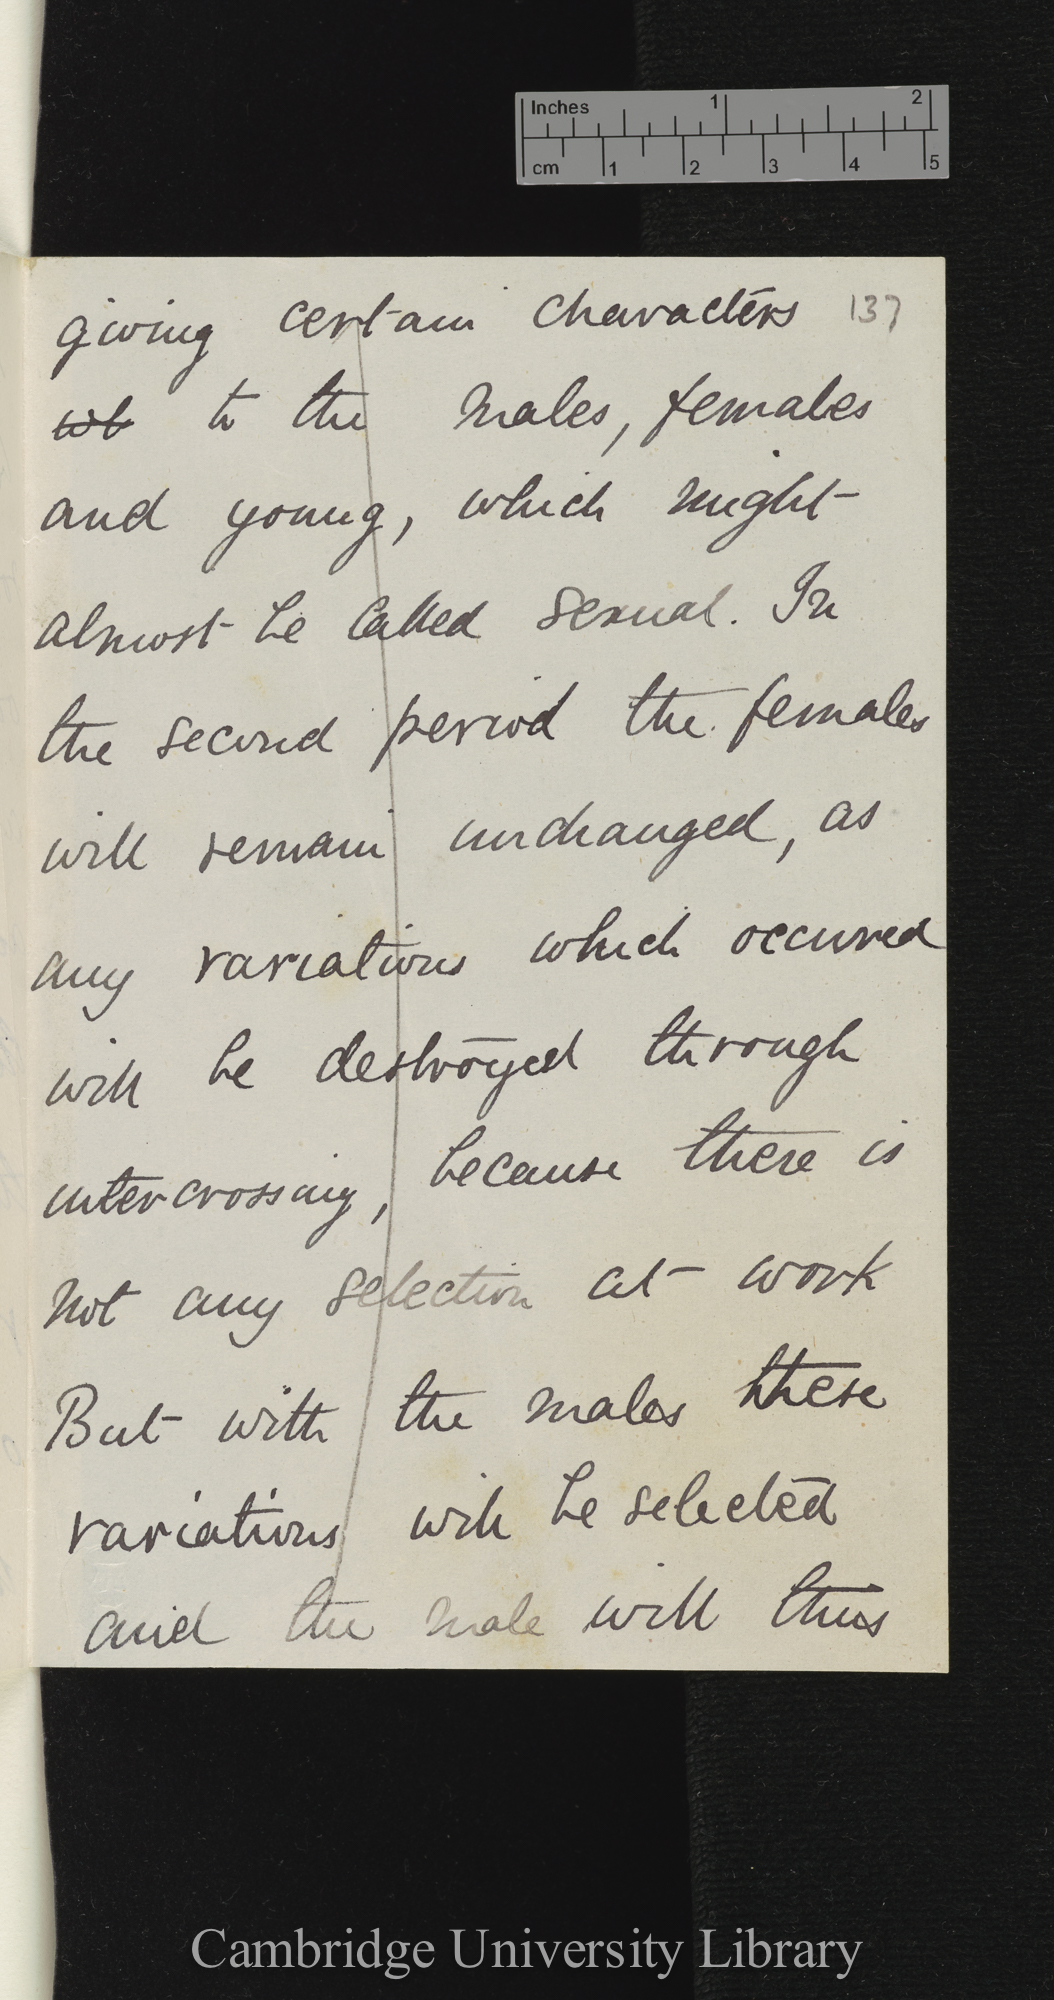 Inches 1 2
cm 1 2 3 4 5
giving certain characters 137
wb to the males, females
and young, which might
almost be called sexual. In
the second period the females
will remain unchanged, as
any variations which occurred
will be destroyed through
intercrossing, because there is
not any selection at work
But with the males these
variations will be selected
and the male will thus
Cambridge University Library